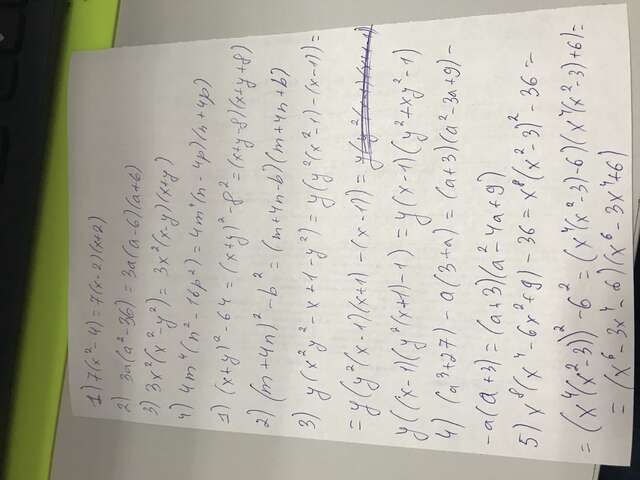 1) 7(x² - 4) = 7(x-2)(x+2)
2) 3a(a² - 36) = 3a(a-6)(a+6)
3) 3x²(x² - y²) = 3x²(x-y)(x+y)
4) 4m⁴(n² - 16p²) = 4m⁴(n - 4p)(n + 4p)
1) (x+y)² - 64 = (x+y)² - 8² = (x+y-8)(x+y+8)
2) (m+4n)² - b² = (m+4n-b)(m+4n+b)
3) y(x²y² - x + 1 - y²) = y(y²(x²-1) - (x-1)) =
= y(y²(x-1)(x+1) - (x-1)) =
y((x-1)(y²(x+1)-1) = y(x-1)(y²+xy²-1)
4) (a³+27) - a(3+a) = (a+3)(a²-3a+9) -
- a(a+3) = (a+3)(a²-4a+9)
5) x⁸(x⁴ - 6x² + 9) - 36 = x⁸(x²-3)² - 36 =
= (x⁴(x²-3))² - 6² = (x⁴(x²-3) - 6)(x⁴(x²-3) + 6) =
= (x⁶ - 3x⁴ - 6)(x⁶ - 3x⁴ + 6)